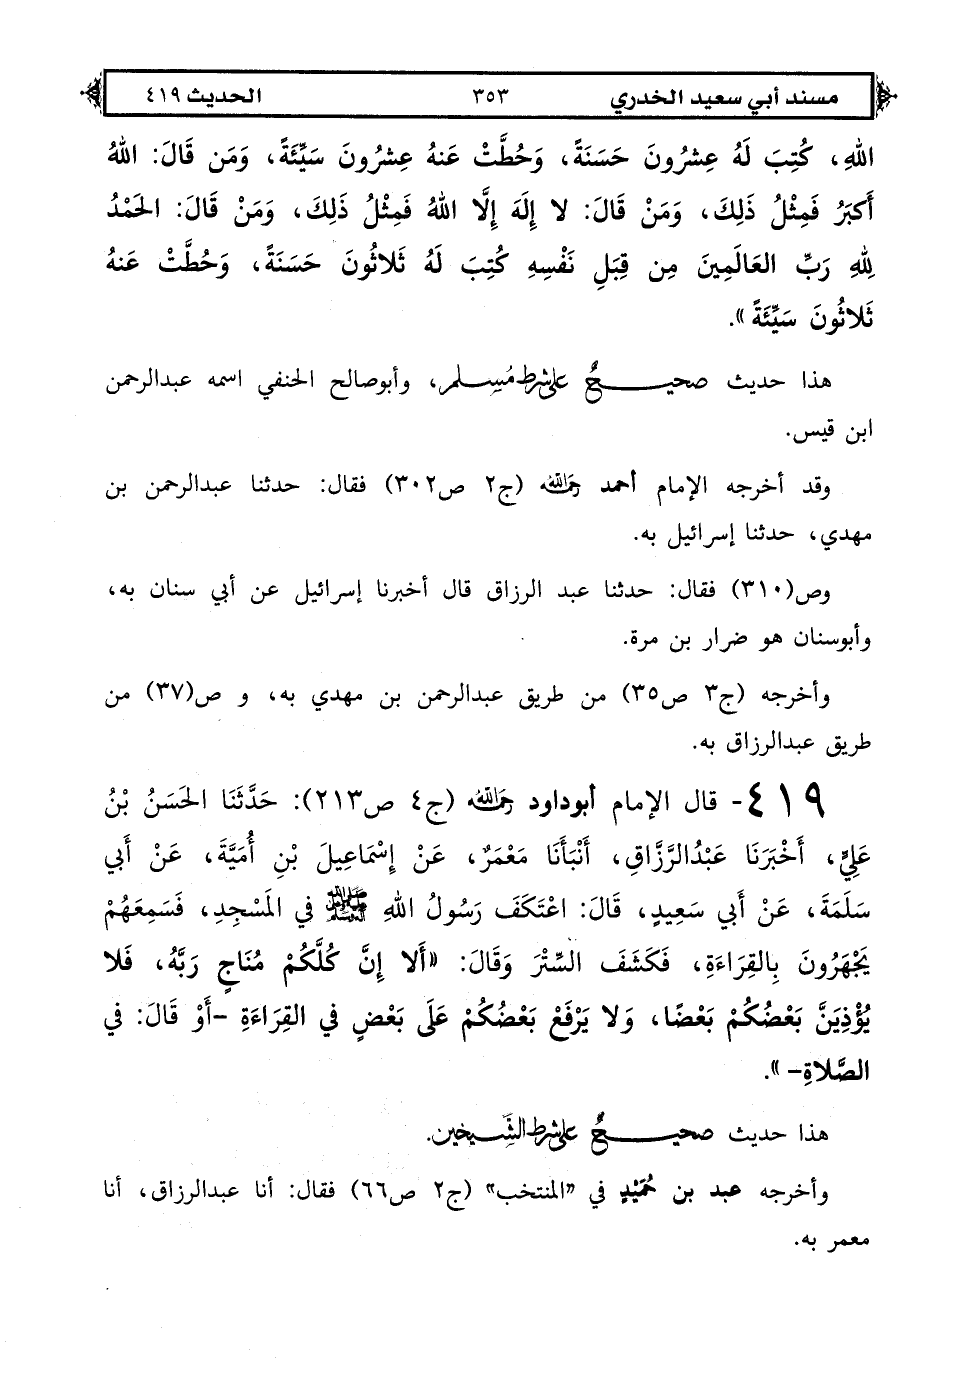 مسند أبي سعيد الخدري ٣٥٣ الحديث ٤١٩
اللهِ، كُتِبَ لَهُ عِشرُونَ حَسَنَةً، وَحُطَّتْ عَنهُ عِشرُونَ سَيِّئَةً، وَمَن قَالَ: اللهُ
أَكبَرُ فَمِثْلُ ذَلِكَ، وَمَنْ قَالَ: لا إِلَهَ إِلَّا اللهُ فَمِثْلُ ذَلِكَ، وَمَنْ قَالَ: الحَمْدُ
لِلهِ رَبِّ العَالَمِينَ مِن قِبَلِ نَفْسِهِ كُتِبَ لَهُ ثَلاثُونَ حَسَنَةً، وَحُطَّتْ عَنهُ
ثَلاثُونَ سَيِّئَةً».
هذا حديث صحيحٌ على شرط مُسلم، وأبوصالح الحنفي اسمه عبدالرحمن
ابن قيس.
وقد أخرجه الإمام أحمد رحمه الله (ج٢ ص٣٠٢) فقال: حدثنا عبدالرحمن بن
مهدي، حدثنا إسرائيل به.
وص(٣١٠) فقال: حدثنا عبد الرزاق قال أخبرنا إسرائيل عن أبي سنان به،
وأبوسنان هو ضرار بن مرة.
وأخرجه (ج٣ ص٣٥) من طريق عبدالرحمن بن مهدي به، و ص(٣٧) من
طريق عبدالرزاق به.
٤١٩- قال الإمام أبوداود رحمه الله (ج٤ ص٢١٣): حَدَّثَنَا الحَسَنُ بْنُ
عَلِيٍّ، أَخْبَرَنَا عَبْدُالرَّزَّاقِ، أَنْبَأَنَا مَعْمَرٌ، عَنْ إِسْمَاعِيلَ بْنِ أُمَيَّةَ، عَنْ أَبِي
سَلَمَةَ، عَنْ أَبِي سَعِيدٍ، قَالَ: اعْتَكَفَ رَسُولُ اللهِ ﷺ فِي المَسْجِدِ، فَسَمِعَهُمْ
يَجْهَرُونَ بِالقِرَاءَةِ، فَكَشَفَ السِّتْرَ وَقَالَ: «أَلا إِنَّ كُلَّكُمْ مُنَاجٍ رَبَّهُ، فَلا
يُؤْذِيَنَّ بَعْضُكُمْ بَعْضًا، وَلا يَرْفَعْ بَعْضُكُمْ عَلَى بَعْضٍ فِي القِرَاءَةِ -أَوْ قَالَ: فِي
الصَّلاةِ-».
هذا حديث صحيحٌ على شرط الشَّيخين.
وأخرجه عبد بن حُمَيْدٍ في «المنتخب» (ج٢ ص٦٦) فقال: أنا عبدالرزاق، أنا
معمر به.